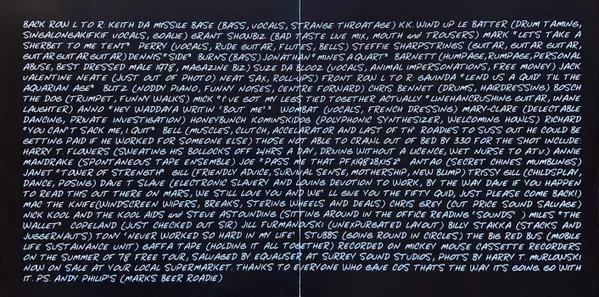 BACK ROW L TO R: KEITH DA MISSILE BASE (BASS, VOCALS, STRANGE THROATAGE) KK WIND UP LE BATTER (DRUM TAMING,
SINGALONGAKIFKIF VOCALS, GOALIE) GRANT SHOWBIZ (BAD TASTE LIVE MIX, MOUTH and TROUSERS) MARK "LETS TAKE A
SHERBET TO ME TENT" PERRY (VOCALS, RUDE GUITAR, FLUTES, BELLS) STEFFIE SHARPSTRINGS (GUITAR, GUITAR GUITAR,
GUITAR GUITAR GUITAR) DENNIS "SIDE" BURNS (BASS) JONATHAN "MINES A QUART" BARNETT (HUMPAGE, RUMPAGE, PERSONAL
ABUSE, BEST DRESSED MALE 1978, MAGAZINE BIZ) SUZE DA BLOOZ (VOCALS, ANIMAL IMPERSONATIONS, FREE MONEY) JACK
VALENTINE NEATE (JUST OUT OF PHOTO) NEAT SAX, ROLL-UPS) FRONT ROW L TO R: GAVINDA "LEND US A QUID 'TIL THE
AQUARIAN AGE" BLITZ (NODDY, FUNNY NOISES, CENTRE FORWARD) CHRIS BENNET (DRUMS, HAIRDRESSING) BOSCH
THE DOG (TRUMPET, FUNNY WALKS) MICK "I'VE GOT MY LEGS TIED TOGETHER ACTUALLY" LINEHAN (CRUSHING GUITAR, INANE
LAUGHTER) ANNO "HEY WADDAYA WRITIN 'BOUT ME?" WOMBAT (VOCALS, FRENCH DRESSING) MARY-CLARE (DELECTABLE
DANCING, PRIVATE INVESTIGATION) HONEYBUNCH KOMINSKIDOS (POLYPHONIC SYNTHESIZER, WELCOMING HOWLS) RICHARD
"YOU CAN'T SACK ME, I QUIT" BELL (MUSCLES, CLUTCH, ACCELARATOR AND LAST OF TH' ROADIES TO SUSS OUT HE COULD BE
GETTING PAID IF HE WORKED FOR SOMEONE ELSE) THOSE NOT ABLE TO CRAWL OUT OF BED BY 3.30 FOR THE SHOT INCLUDE:
HARRY T. FLOWERS (SWEATING HIS BOLLOCKS OFF 27HRS A DAY, DRIVING WITHOUT A LICENCE, WET NURSE TO ATV) ANNIE
MANDRAKE (SPONTANEOUS TAPE ENSEMBLE) JOE "PASS ME THAT" ANTAO (SECRET CHINES MUMBLINGS)
JANET "TOWER OF STRENGTH" GILL (FRIENDLY ADVICE, SURVIVAL SENSE, MOTHERSHIP, NEW BLIMP) TRISSY GILL (CHILDSPLAY,
DANCE, POSING) DAVE T SLAVE (ELECTRONIC SLAVERY AND LOVING DEVOTION TO WORK, BY THE WAY DAVE IF YOU HAPPEN
TO READ THIS OUT THERE ON MARS, WE STILL LOVE YOU AND WE'LL GIVE YOU THE FIFTY QUID, JUST PLEASE COME BACK)
MAC THE KNIFE (WINDSCREEN WIPERS, BREAKS, STERING WHEELS AND DEALS) CHRIS GREY (CUT PRICE SOUND SALVAGE)
NICK KOOL AND THE KOOL AIDS and STEVE ASTOUNDING (SITTING AROUND IN THE OFFICE READING 'SOUNDS') MILES "THE
WALLET" COPELAND (JUST CHECKED OUT SIR) JILL FURMANOVSKI (UNEXPURGATED LAYOUT) BILLY STAKKA (STACKS AND
JUGGERNAUTS) TONY "NEVER WORKED SO HARD IN MY LIFE" STUBBS (GOING ROUND IN CIRCLES) THE BIG RED BUS (MOBILE
LIFE SUSTAINANCE UNIT) GAFFA TAPE (HOLDING IT ALL TOGETHER) RECORDED ON MICKEY MOUSE CASSETTE RECORDERS
ON THE SUMMER OF '78 FREE TOUR, SALVAGED BY EQUALISER AT SURREY SOUND STUDIOS, PHOTS BY HARRY T. MURLOWSKI
NOW ON SALE AT YOUR LOCAL SUPERMARKET. THANKS TO EVERYONE WHO GAVE COS THAT'S THE WAY IT'S GOING GO WITH
IT. P.S. ANDY PHILIP'S (MARKS BEER ROADIE)